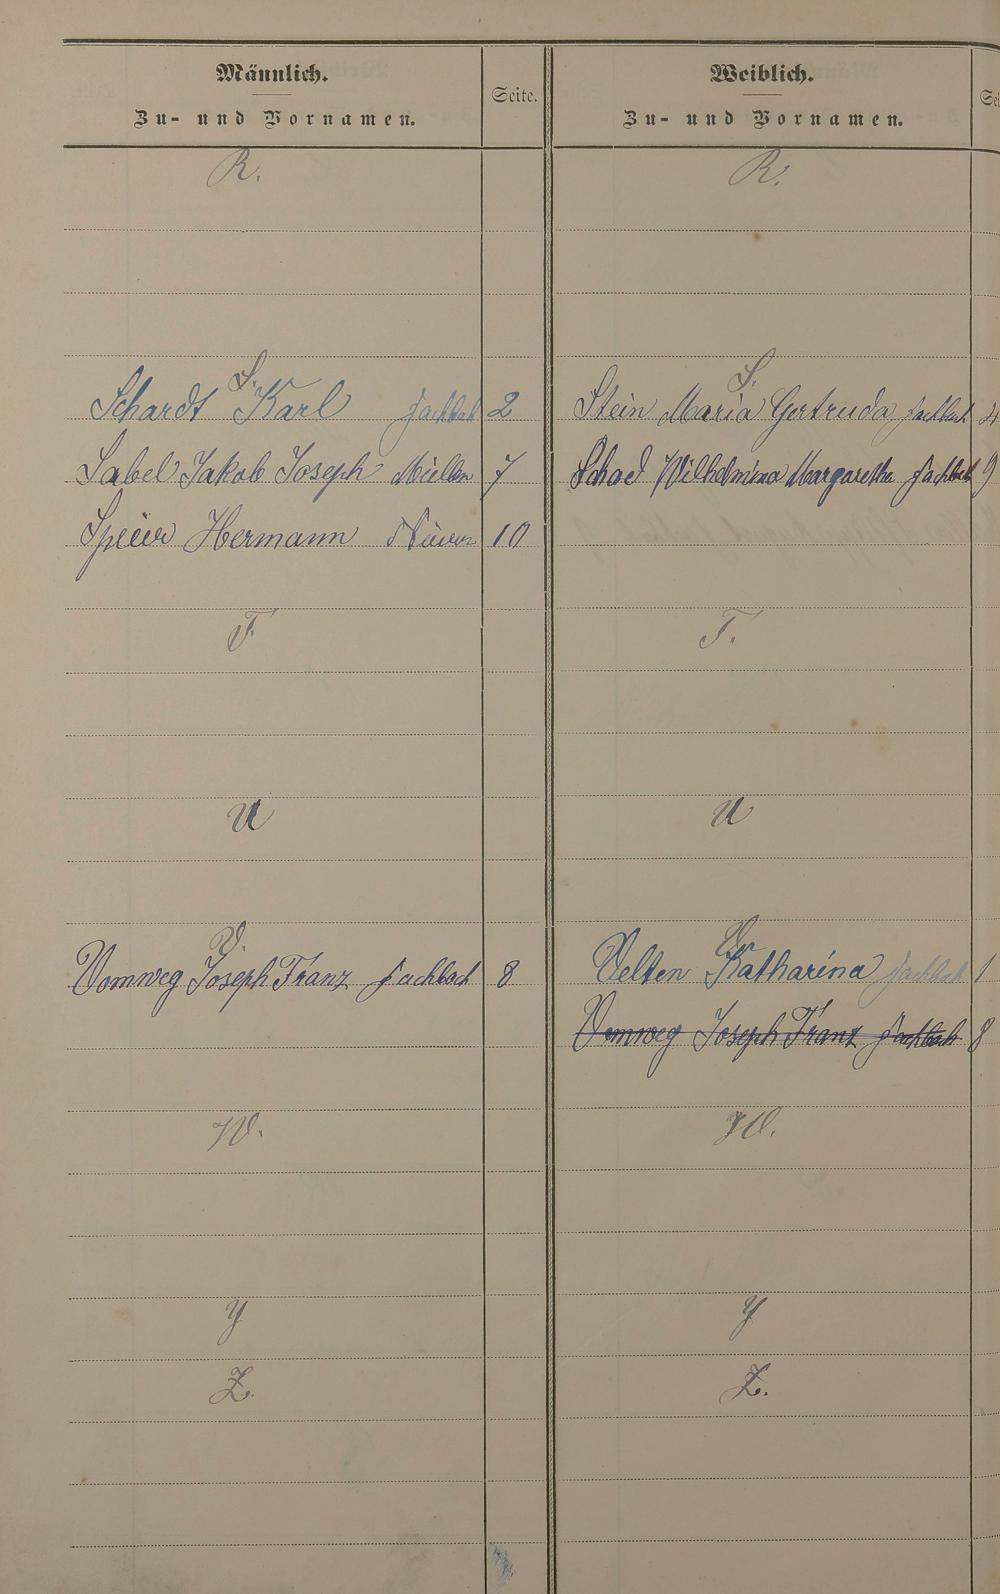 Männlich.
Zu- und Vornamen.
Seite.
R.
S.
Schardt Karl Fachbach 2
Sabel Jakob Joseph Miellen 7
Speier Hermann Nievern 10
T.
U
V.
Vomweg Joseph Franz Fachbach 8
W.
Y
Z.
Weiblich.
Zu- und Vornamen.
Sei
R.
S.
Stein Maria Gertruda Fachbach 4
Schad Wilhelmina Margaretha Fachbach 9
T.
U
V.
Velten Katharina Fachbach 1
Vomweg Joseph Franz Fachbach 8
W.
Y
Z.